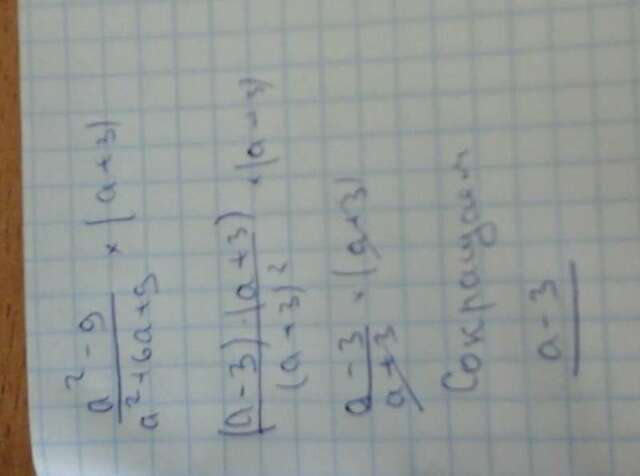 a² - 9 / a² + 6a + 9 × (a + 3)
(a - 3) · (a + 3) / (a + 3)² × (a + 3)
a - 3 / a + 3 × (a + 3)
Сокращаем
a - 3